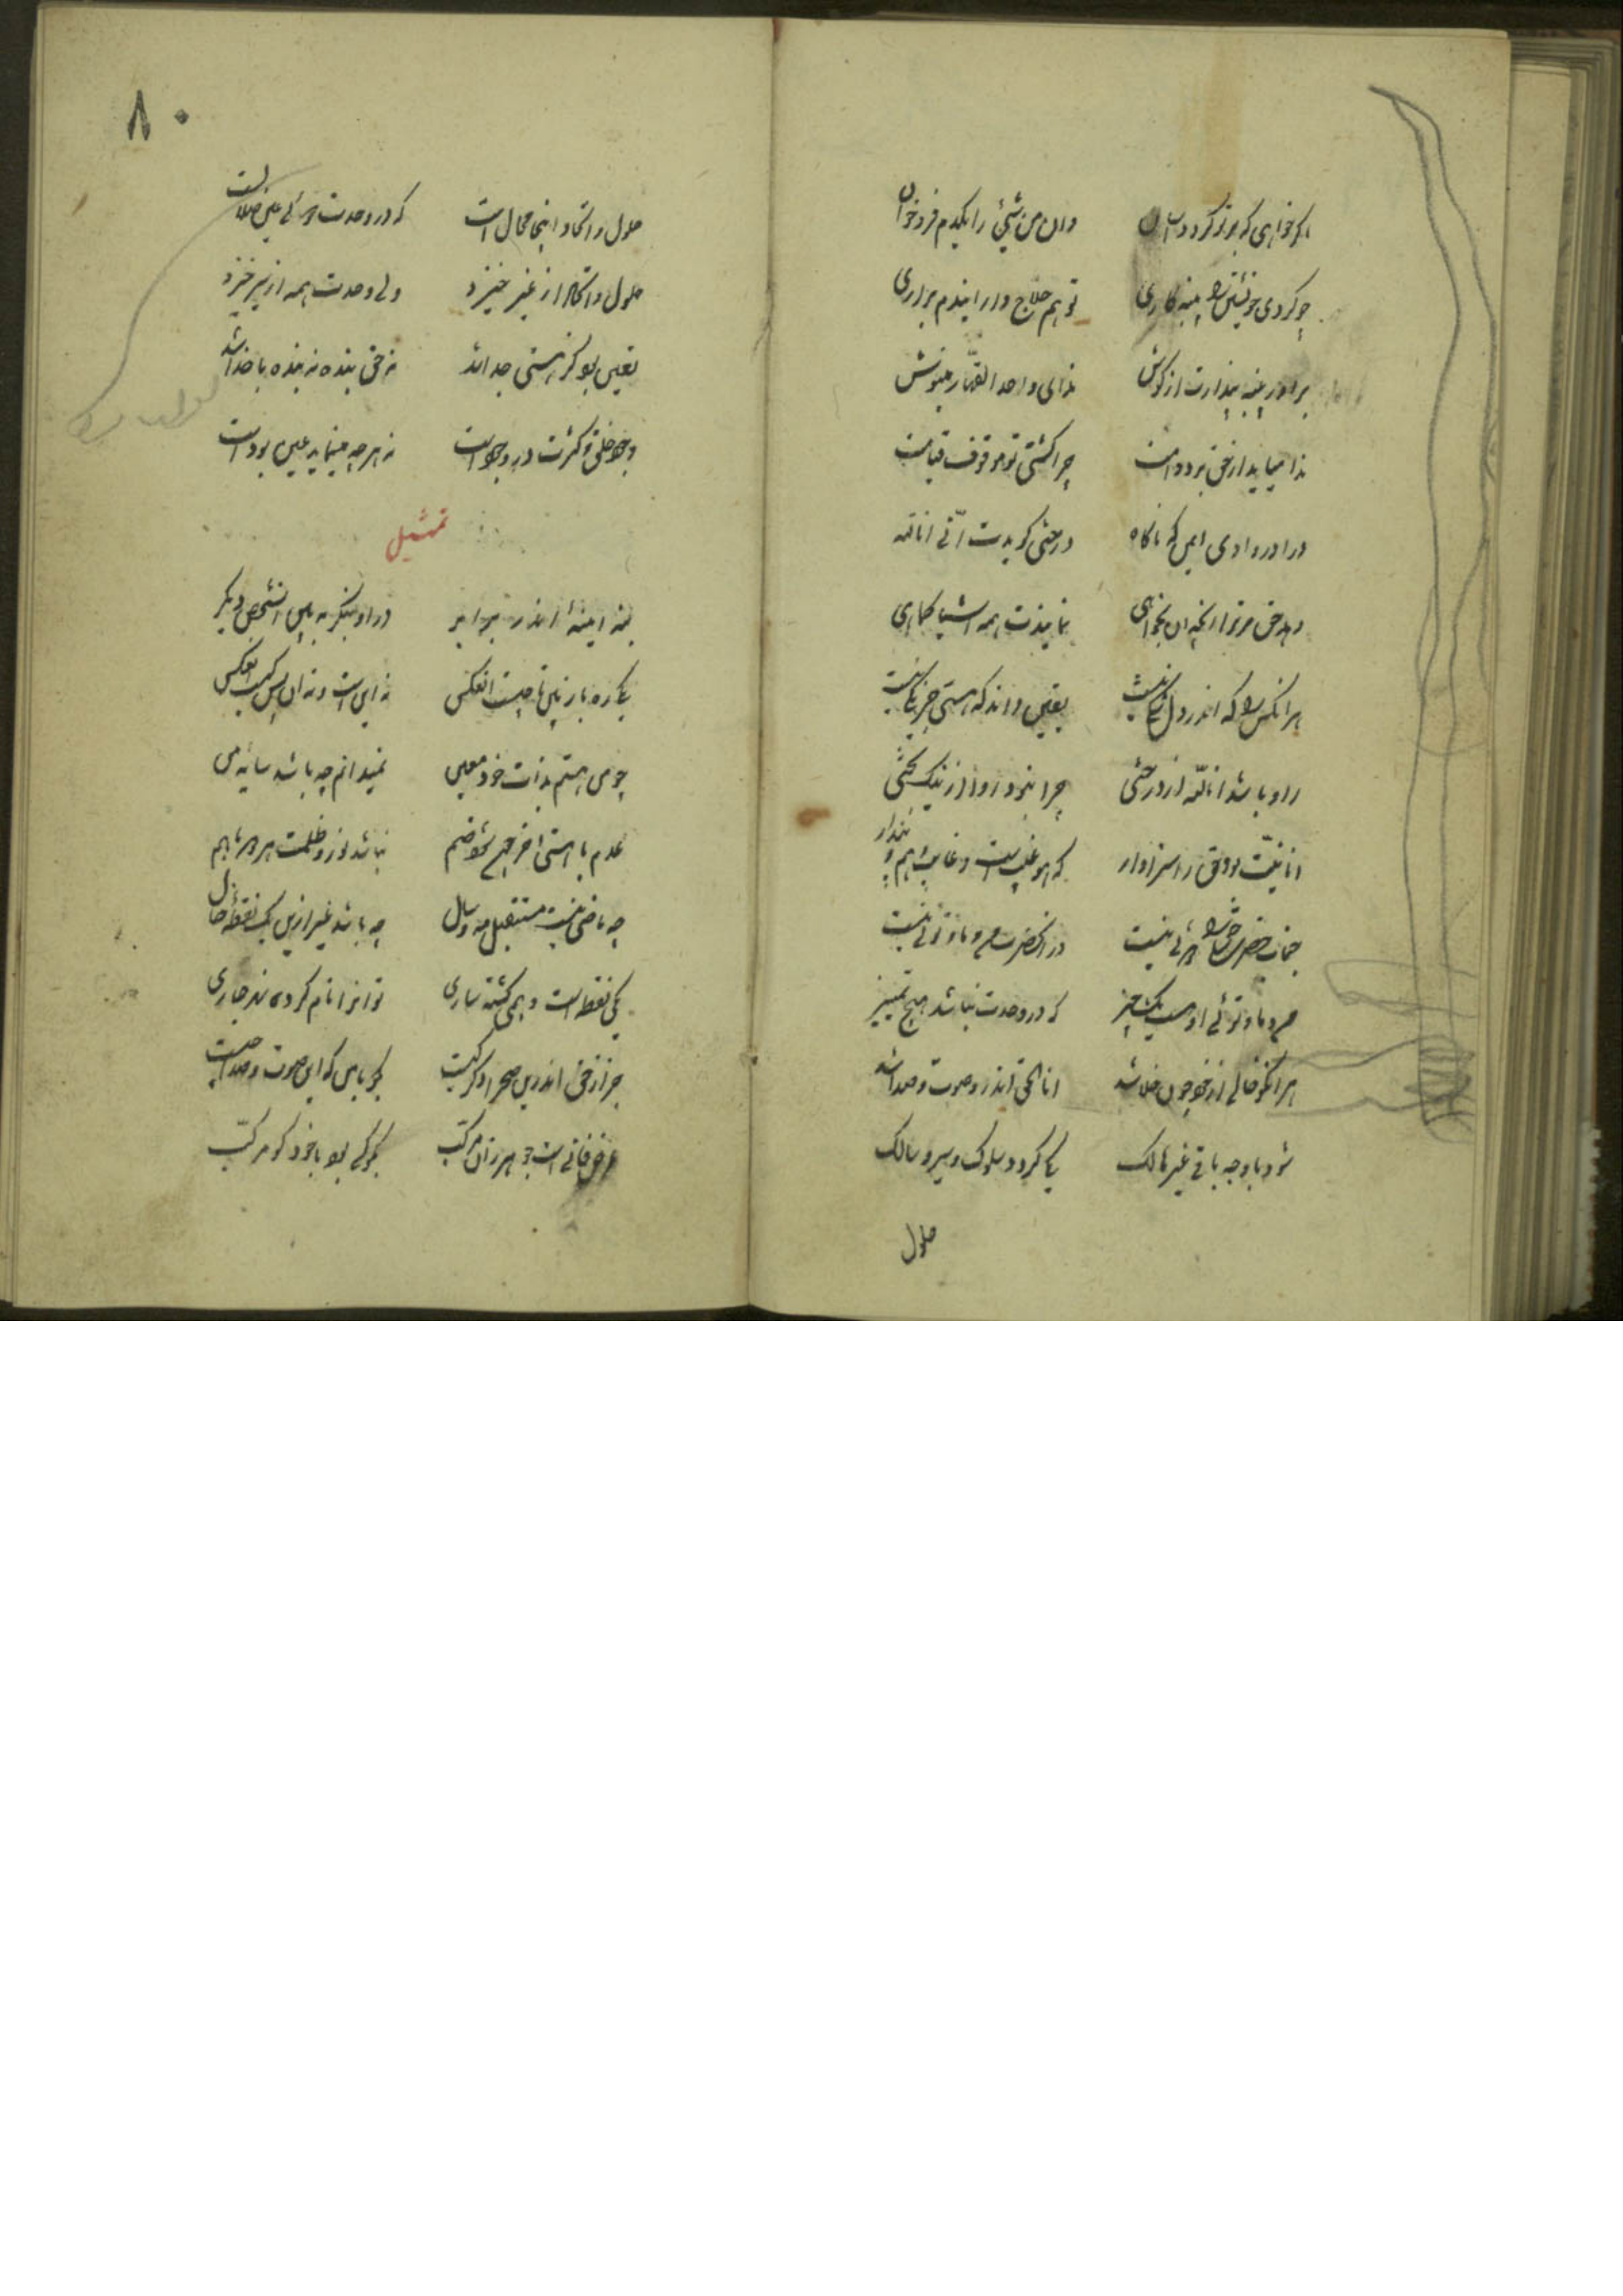 اگر خواهی که بر تو گردد آسان وان من شیئ را یکدم فرو خوان
چو کردی خویشتن را پنبه کاری تو هم حلاج وار ایندم براری
براور پنبه پندارت از کوش ندای واحد القهار بنیوش
ندا میاید از حق بر دوامت چرا کشتی تو موقوف قیامت
درا در وادی ایمن که ناکاه درختی کویدت انّی انا الله
دهد حق مر ترا از آنچه آن بخواهی نمایندت همه اشیا کماهی
هر انکس را که اندر دل شکی نیست یقین داند که هستی جز یکی نیست
روا باشد انا اللّه از درختی چرا نبود روا از نیک بختی
انانیّت بود حق را سزاوار که هو غیب است و غایب وهم و پندار
جناب حضرت حق را دوئی نیست در انحضرت من و ما و توئی نیست
من و ما و تو و او هست یک چیز که در وحدت نباشد هیچ تمییز
هر انکو خالی از خود چون خلا شد انا الحق اندرو صوت و صدا شد
شود با وجه باقی غیر هالک یکی کردد سلوک و سیر و سالک
حلول
۸۰
حلول و اتحاد اینجا محال است که در وحدت دوئی عین ضلالست
حلول و اتحاد از غیر خیزد ولی وحدت همه از سیر خیزد
تعین بود کز هستی جدا شد نه حق بنده نه بنده با خدا شد
وجود خلق و کثرت در وجود است نه هر چه مینماید عین بود است
تمثیل
بنه اینهٔ اندر برابر در او بنکر به بین انشخص دیکر
یکی ره باز بین تا چیست ان عکس نه این است و نه ان پس کیست ان عکس
چو من هستم بذات خود معین نمیدانم چه باشد سایه من
عدم با هستی اخر چون شود ضم نباشد نور و ظلمت هر دو با هم
چو ماضی نیست مستقبل مه و سال چه باشد غیر ازین یک نقطهٔ حال
یکی نقطه است وهمی کشته ساری تو انرا نام کرده نهر جاری
جز از حق اندرین صحرا دکر کیست بکو با من که این صوت و صدا چیست
عرض فانی است جوهر زان مرکب بکو کی بود یا خود کو مرکب